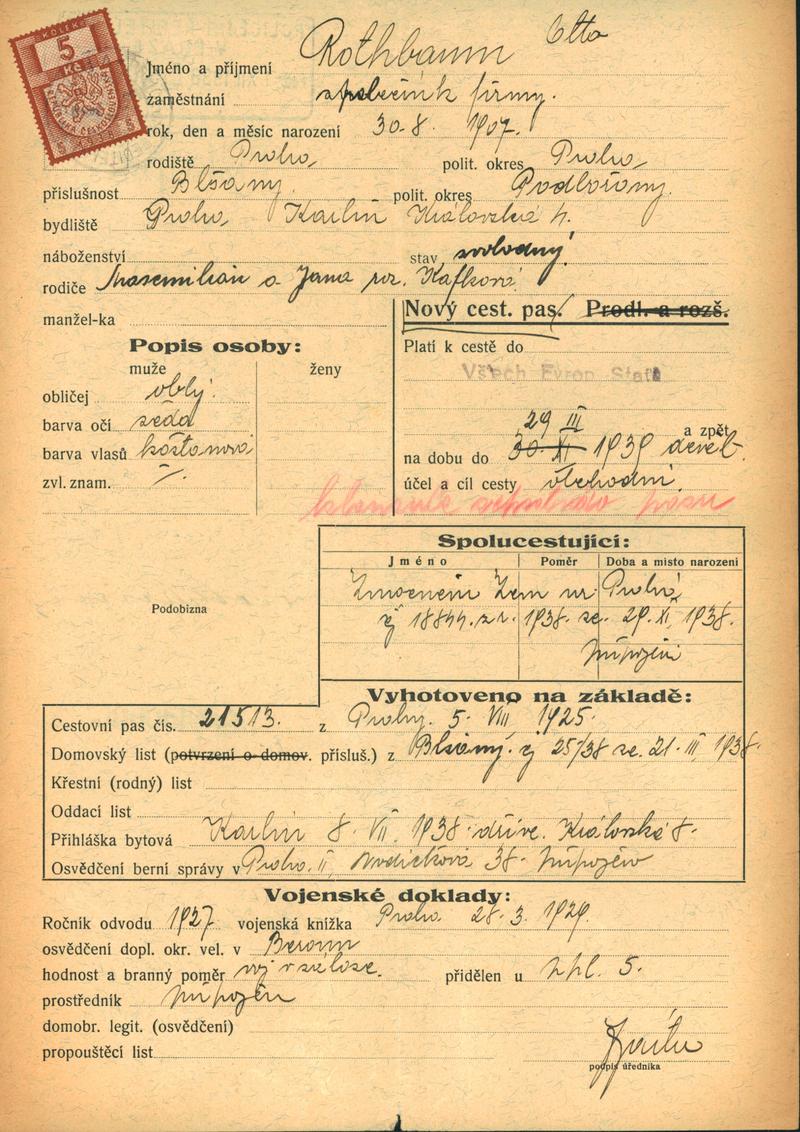 KOLEK
5
Kč
Rothbaum Otto
Jméno a příjmení
zaměstnání společník firmy.
rok, den a měsíc narození 30. 8. 1907.
rodiště Praha, polit. okres Praha,
příslušnost Blšany. polit. okres Podbořany.
bydliště Praha, Karlín Královská
náboženství stav svobodný.
rodiče a Jana roz. Kafková
manžel-ka
Nový cest. pas. Prodl. a rozš.
Popis osoby:
Platí k cestě do
muže ženy
Všech Evrop Států
obličej oblý.
barva očí šedá
barva vlasů kaštanová
zvl. znam. /.
29 III
a zpět
na dobu do 30. XI 1939
účel a cíl cesty obchodní.
pasu
Spolucestující:
Jméno Poměr Doba a místo narození
Zmocnění Zem. úř. Praha
čj 18844. z r. 1938 ze 29. XI. 1938.
připojeni
Podobizna
Vyhotoveno na základě:
Cestovní pas čís. 21513. z Prahy. 5. VIII 1925.
Domovský list (potvrzení o domov. přísluš.) z Blšany. čj 25/38 ze. 21. III. 1938.
Křestní (rodný) list
Oddací list
Přihláška bytová Karlín 8. VII. 1938 dříve. Královská 8.
Osvědčení berní správy v Praha. II, 38. připojeno
Vojenské doklady:
Ročník odvodu 1927 vojenská knížka Praha 28. 3. 1929.
osvědčení dopl. okr. vel. v Beroun
hodnost a branný poměr voj. v záloze. přidělen u 5.
prostředník připojen
domobr. legit. (osvědčení)
propouštěcí list
podpis úředníka